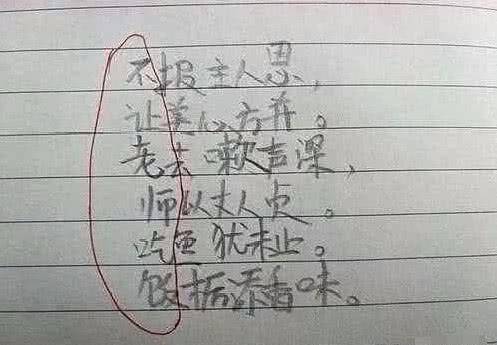 不报主人恩,
让美心方荐。
老去嗽声深,
师以丈人贞。
吃更犹未止。
饭栃添香味。